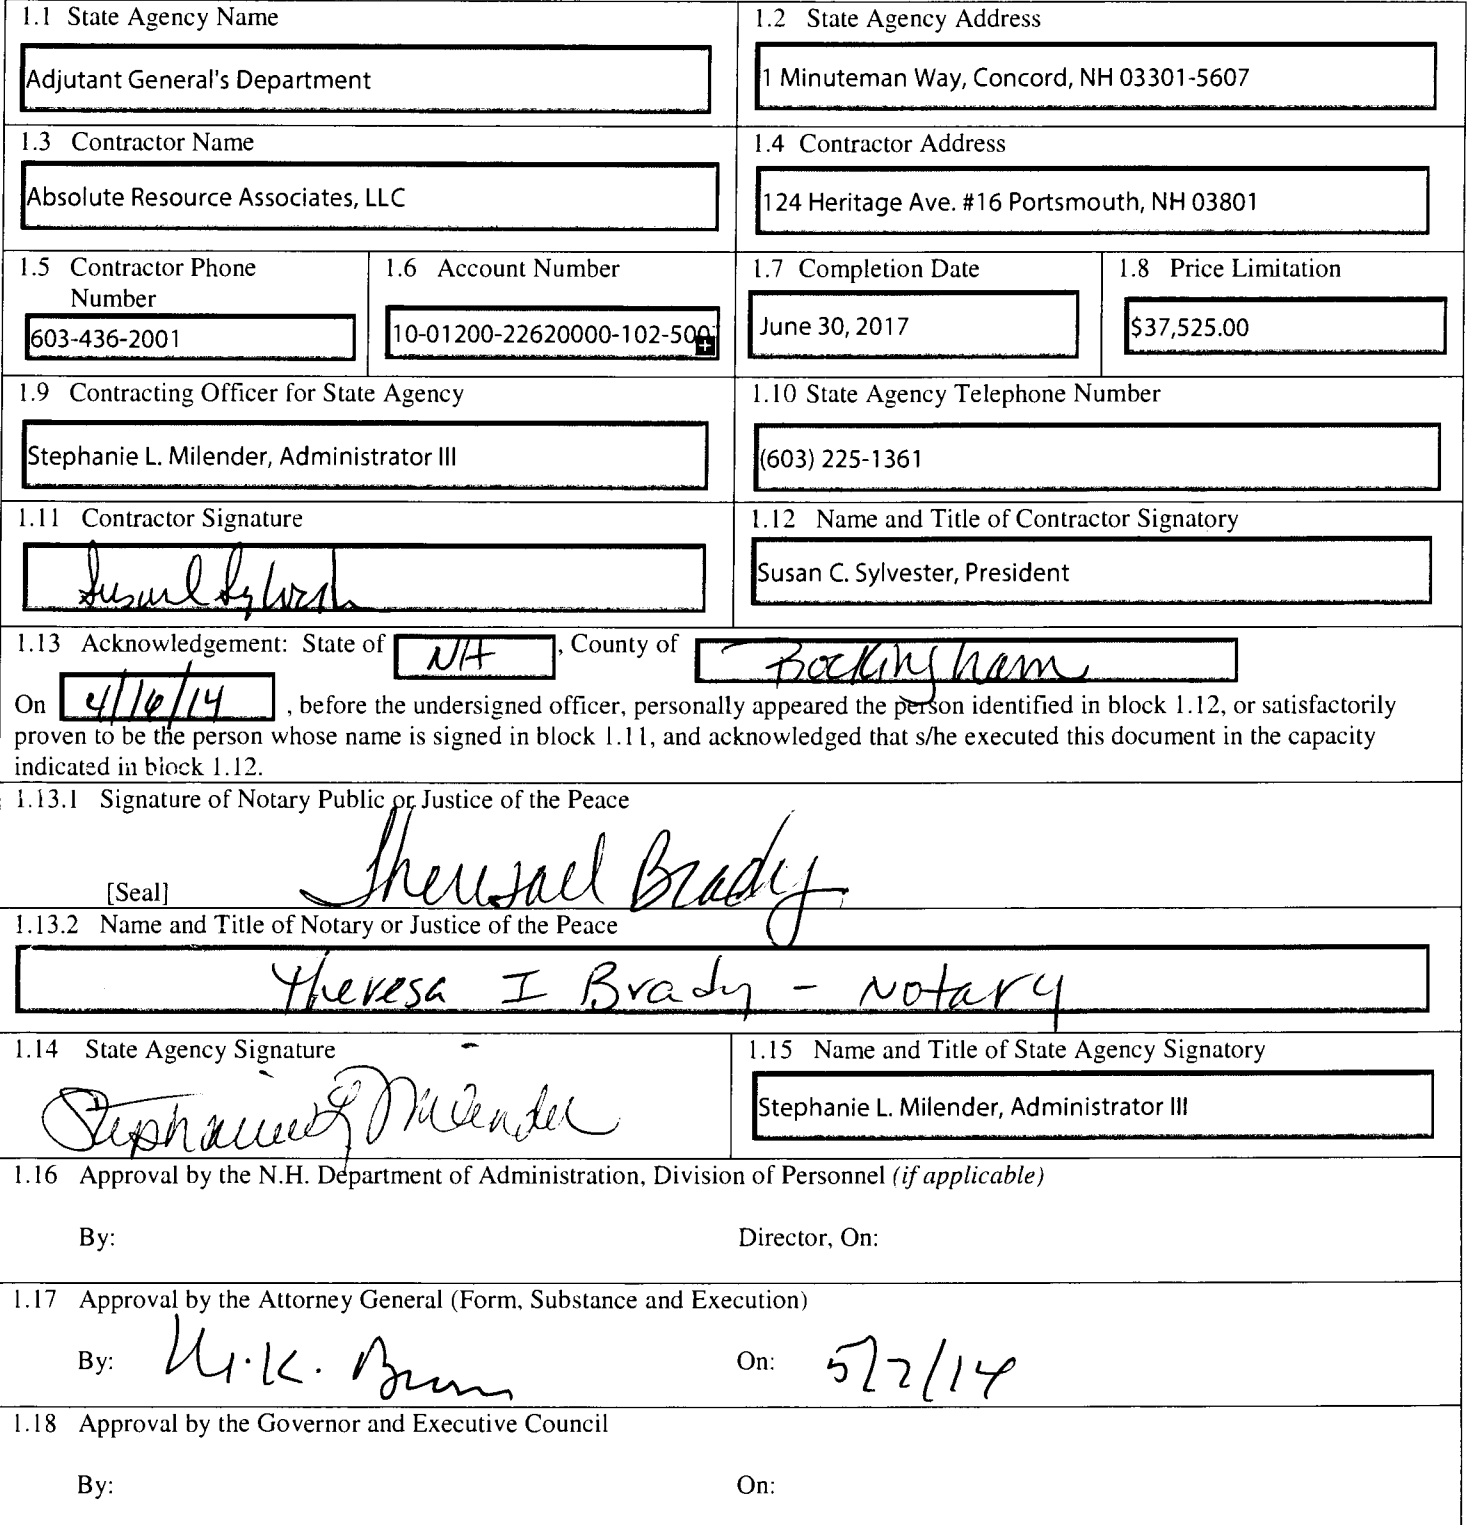 1.1 State Agency Name
Adjutant General's Department
1.2 State Agency Address
1 Minuteman Way, Concord, NH 03301-5607
1.3 Contractor Name
Absolute Resource Associates, LLC
1.4 Contractor Address
124 Heritage Ave. #16 Portsmouth, NH 03801
1.5 Contractor Phone
Number
603-436-2001
1.6 Account Number
10-01200-22620000-102-500
1.7 Completion Date
June 30, 2017
1.8 Price Limitation
$37,525.00
1.9 Contracting Officer for State Agency
Stephanie L. Milender, Administrator III
1.10 State Agency Telephone Number
(603) 225-1361
1.11 Contractor Signature
Susan C Sylvester
1.12 Name and Title of Contractor Signatory
Susan C. Sylvester, President
1.13 Acknowledgement: State of NH, County of Rockingham
On 4/16/14, before the undersigned officer, personally appeared the person identified in block 1.12, or satisfactorily
proven to be the person whose name is signed in block 1.11, and acknowledged that s/he executed this document in the capacity
indicated in block 1.12.
1.13.1 Signature of Notary Public or Justice of the Peace
Theresa I Brady
[Seal]
1.13.2 Name and Title of Notary or Justice of the Peace
Theresa I Brady - Notary
1.14 State Agency Signature
Stephanie L Milender
1.15 Name and Title of State Agency Signatory
Stephanie L. Milender, Administrator III
1.16 Approval by the N.H. Department of Administration, Division of Personnel (if applicable)
By: Director, On:
1.17 Approval by the Attorney General (Form, Substance and Execution)
By: K. On: 5/7/14
1.18 Approval by the Governor and Executive Council
By: On: